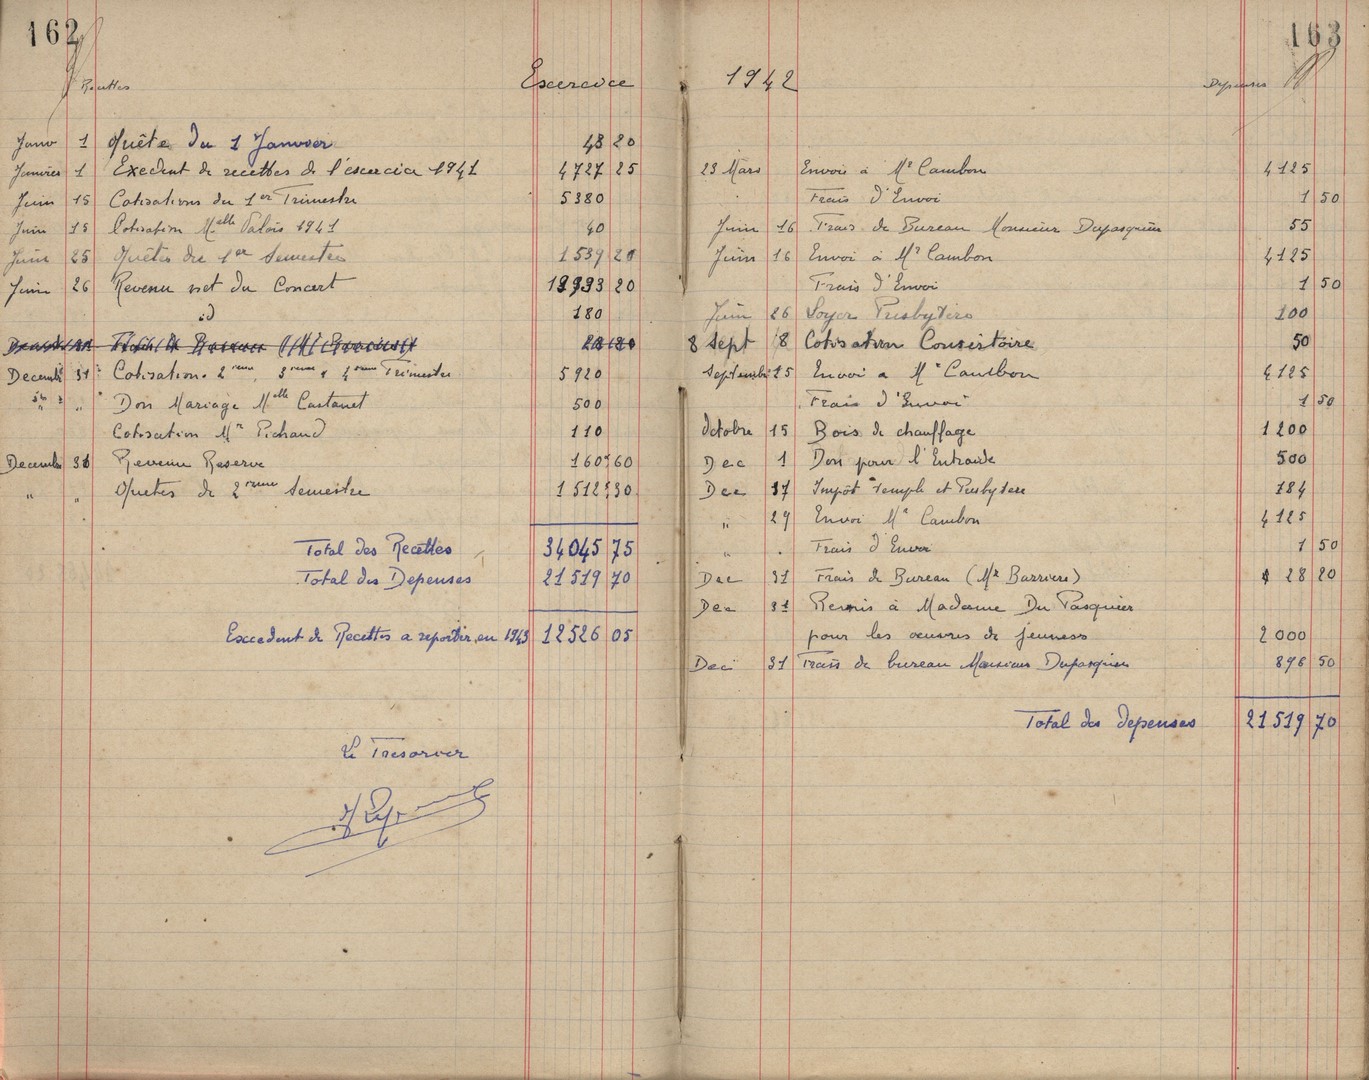 162
Recettes
Exercice
Janv 1 Quête du 1 Janvier 43 20
Janvier 1 Exedent de recettes de l'exercice 1941 4727 25
Juin 15 Cotisations du 1er Trimestre 5380
Juin 15 Cotisation Melle Valois 1941 40
Juin 25 Quêtes du 1er Semestre 1539 20
Juin 26 Revenu net du Concert 13933 20
id 180
Decemb 31 Cotisation. 2eme, 3eme & 4eme Trimestre 5920
" " Don Mariage Melle Castanet 500
Cotisation Mr Pichaud 110
Decembre 31 Revenu Reserve 160 60
" " Quetes du 2eme Semestre 1512 30
Total des Recettes 34045 75
Total des Depenses 21519 70
Excedent de Recettes a reporter en 1943 12526 05
Le Tresorier
163
1942
Depenses
23 Mars Envoi à Mr Cambon 4125
Frais d'Envoi 1 50
Juin 16 Frais de Bureau Monsieur Dupasquier 55
Juin 16 Envoi à Mr Cambon 4125
Frais d'Envoi 1 50
Juin 26 Loyer Presbytère 100
8 Sept 8 Cotisation Consistoire 50
Septembre 25 Envoi a Mr Cambon 4125
Frais d'Envoi 1 50
Octobre 15 Bois de chauffage 1200
Dec 1 Don pour l'Entraide 500
Dec 17 Impôt Temple et Presbytere 184
" 29 Envoi Mr Cambon 4125
" . Frais d'Envoi 1 50
Dec 31 Frais de Bureau (Mr Barriere) 28 20
Dec 31 Remis à Madame Du Pasquier
pour les œuvres de jeuness 2000
Dec 31 Frais de bureau Monsieur Dupasquier 896 50
Total des depenses 21519 70